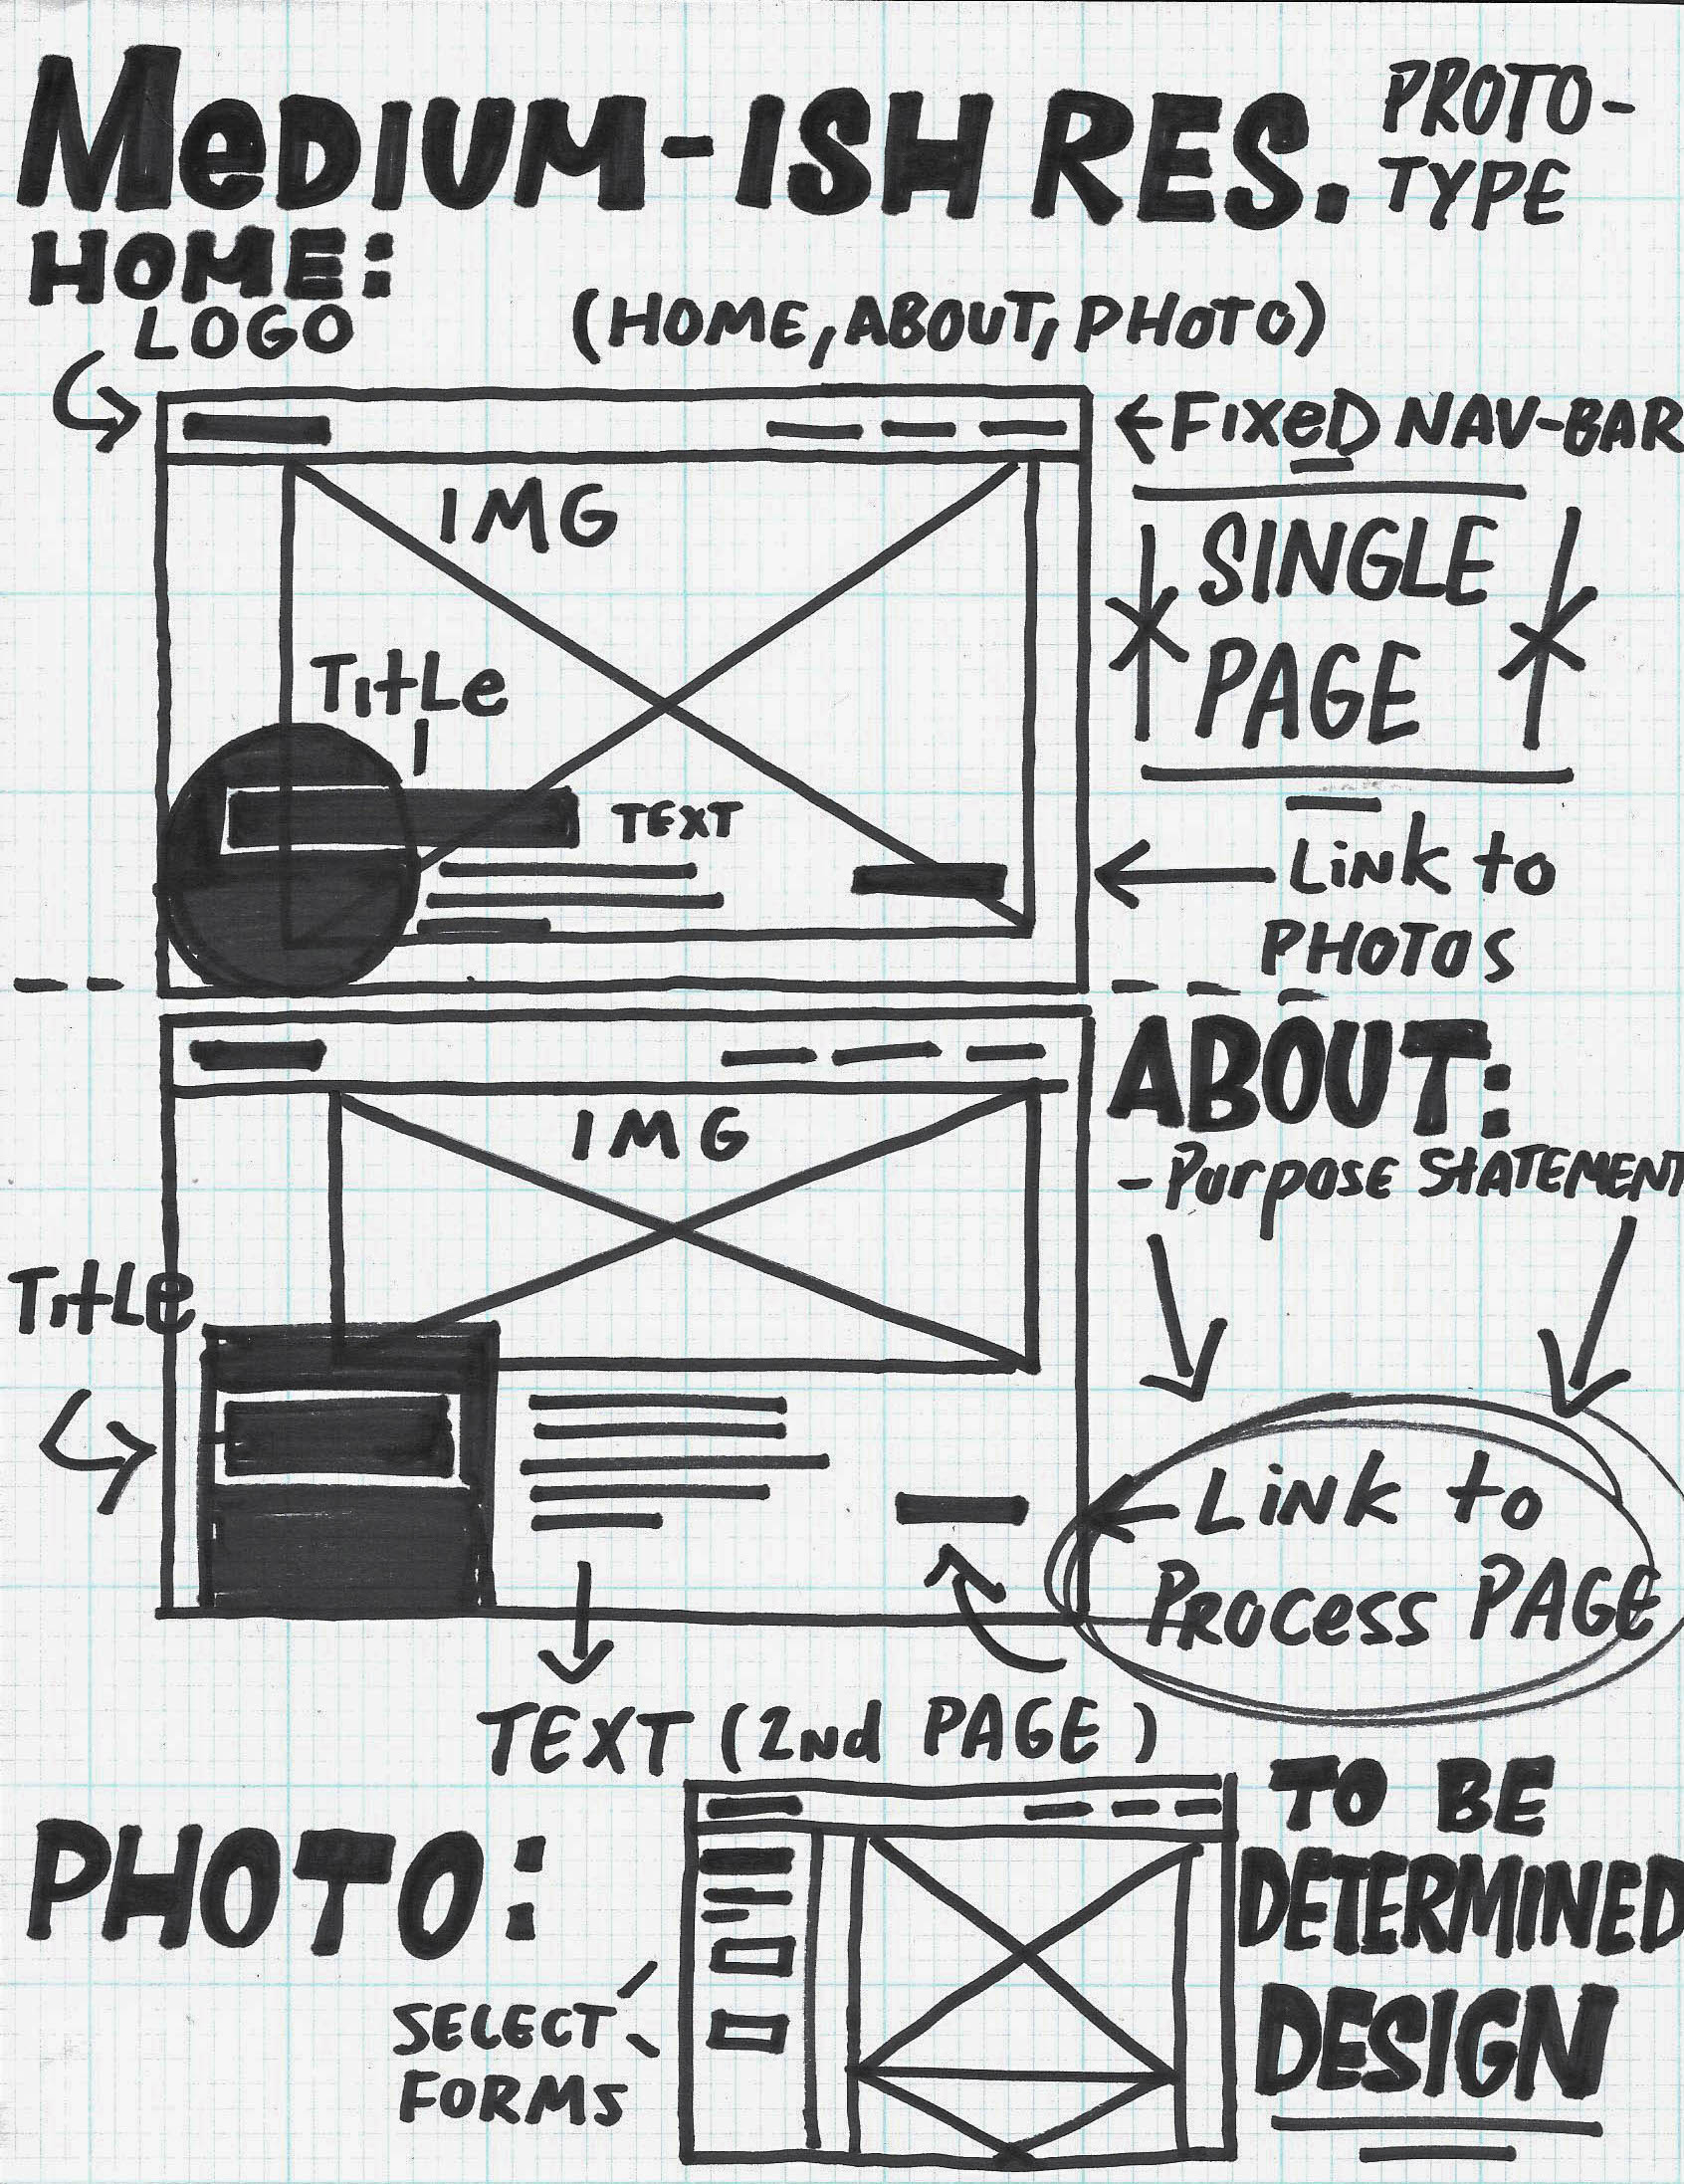 MeDIUM-ISH RES. PROTO-
TYPE
HOME:
LOGO
(HOME, ABOUT, PHOTO)
←FixeD NAV-BAR
IMG
SINGLE
PAGE
TitLe
TEXT
← Link to
PHOTOS
ABOUT:
IMG
- Purpose StATEMENT
TitLe
← Link to
Process PAGE
TEXT (2nd PAGE)
PHOTO:
TO BE
DETERMINED
DESIGN
SELECT
FORMS